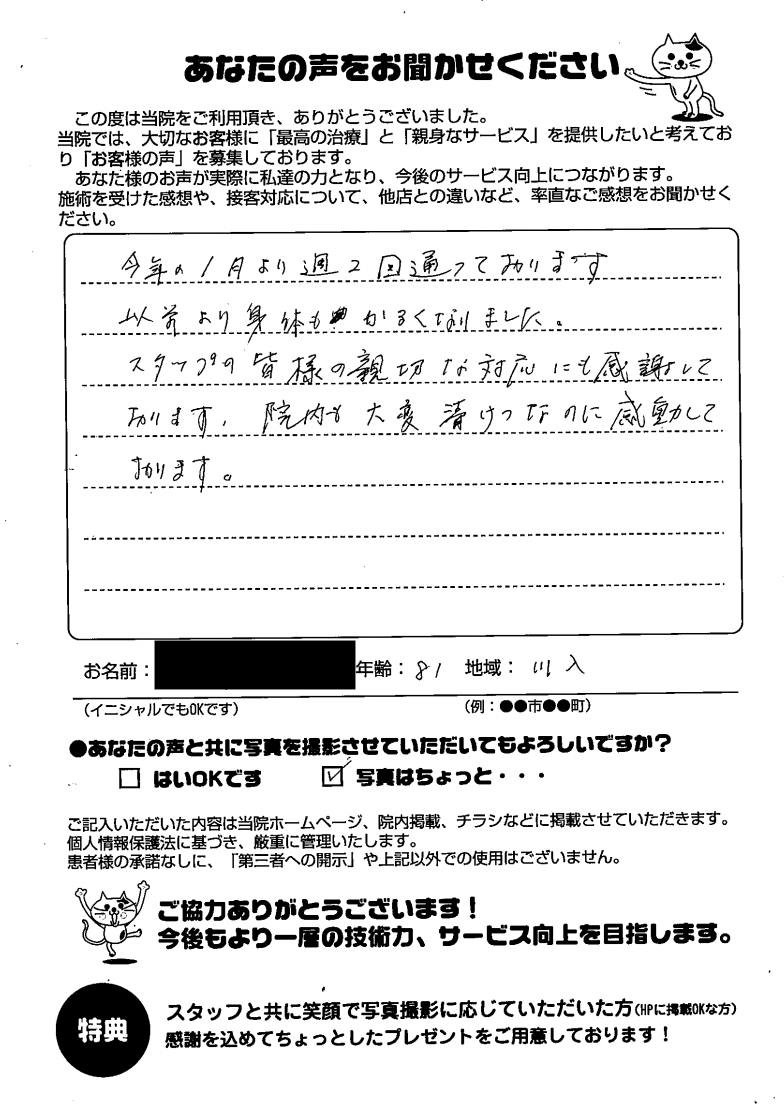 あなたの声をお聞かせください
この度は当院をご利用頂き、ありがとうございました。
当院では、大切なお客様に「最高の治療」と「親身なサービス」を提供したいと考えてお
り「お客様の声」を募集しております。
あなた様のお声が実際に私達の力となり、今後のサービス向上につながります。
施術を受けた感想や、接客対応について、他店との違いなど、率直なご感想をお聞かせく
ださい。
今年の1月より週2回通っております
以前より身体もかるくなりました。
スタッフの皆様の親切な対応にも感謝して
おります、院内も大変清けつなのに感動して
おります。
お名前： 年齢：81 地域：川入
（イニシャルでもOKです） （例：●●市●●町）
●あなたの声と共に写真を撮影させていただいてもよろしいですか？
□ はいOKです ☑ 写真はちょっと・・・
ご記入いただいた内容は当院ホームページ、院内掲載、チラシなどに掲載させていただきます。
個人情報保護法に基づき、厳重に管理いたします。
患者様の承諾なしに、「第三者への開示」や上記以外での使用はございません。
ご協力ありがとうございます！
今後もより一層の技術力、サービス向上を目指します。
特典
スタッフと共に笑顔で写真撮影に応じていただいた方（HPに掲載OKな方）
感謝を込めてちょっとしたプレゼントをご用意しております！